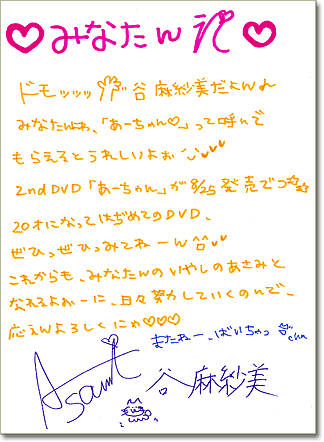 ♡みなたんに♡
ドモッッッ 谷麻紗美だよん♪
みなたんよね、「あーちゃん♡」って呼んで
もらえるとうれしいよぉ♥♥
2ndDVD「あーちゃん」が8/25発売でつ☆☆
20才になってはぢめてのDVD、
ぜひっぜひっみてねーん♥♥
これからも、みなたんのいやしのあさみと
なれるよぉーに、日々努力していくので、
応えんよろしくにゃ♡♡♡
またねー、ばいちゃっ chu
Asami
谷麻紗美